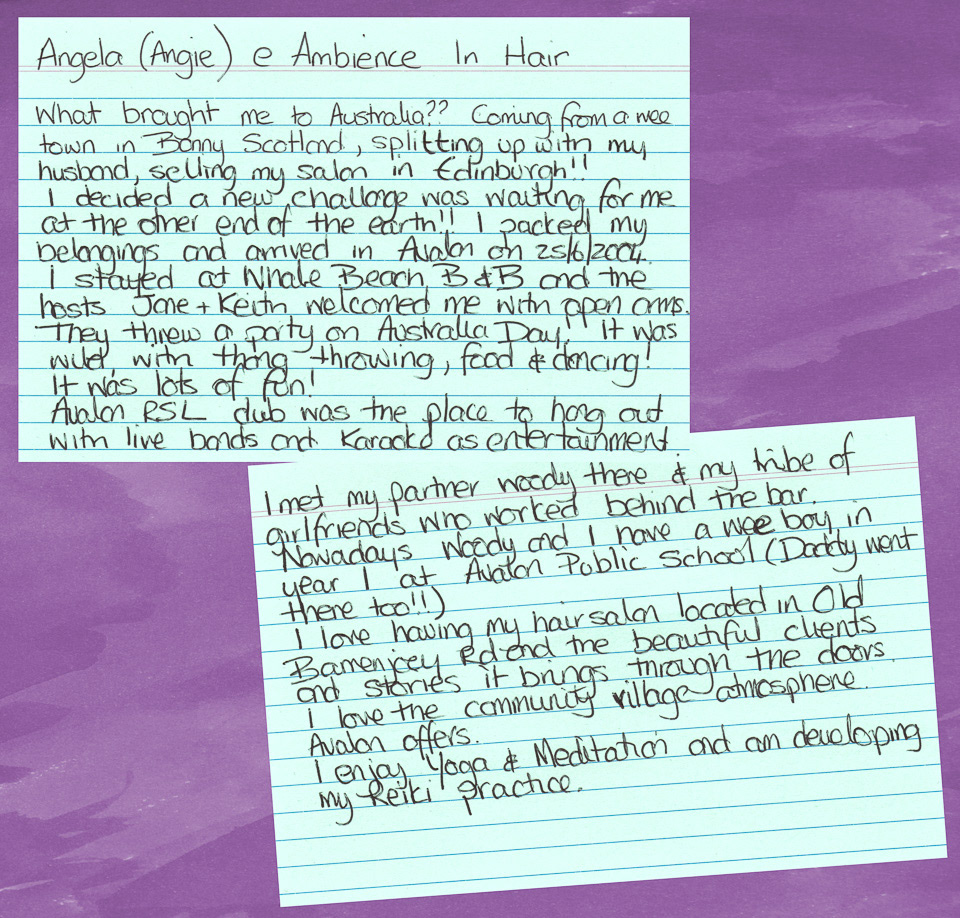 Angela (Angie) e Ambience In Hair
What brought me to Australia?? Coming from a wee
town in Bonny Scotland, splitting up with my
husband, selling my salon in Edinburgh!!
I decided a new challenge was waiting for me
at the other end of the earth!! I packed my
belongings and arrived in Avalon on 25/6/2004.
I stayed at Whale Beach B&B and the
hosts Jane + Keith welcomed me with open arms.
They threw a party on Australia Day! it was
wild with thong throwing, food & dancing!
It was lots of fun!
Avalon RSL club was the place to hang out
with live bands and as entertainment
I met my partner woody there & my tribe of
girlfriends who worked behind the bar.
Nowadays Woody and I have a wee boy in
year 1 at Avalon Public School (Daddy went
there too!!)
I love having my hair salon located in Old
Barrenjoey Rd and the beautiful clients
and stories it brings through the doors.
I love the community village atmosphere
Avalon offers.
I enjoy Yoga & Meditation and am developing
my Reiki practice.